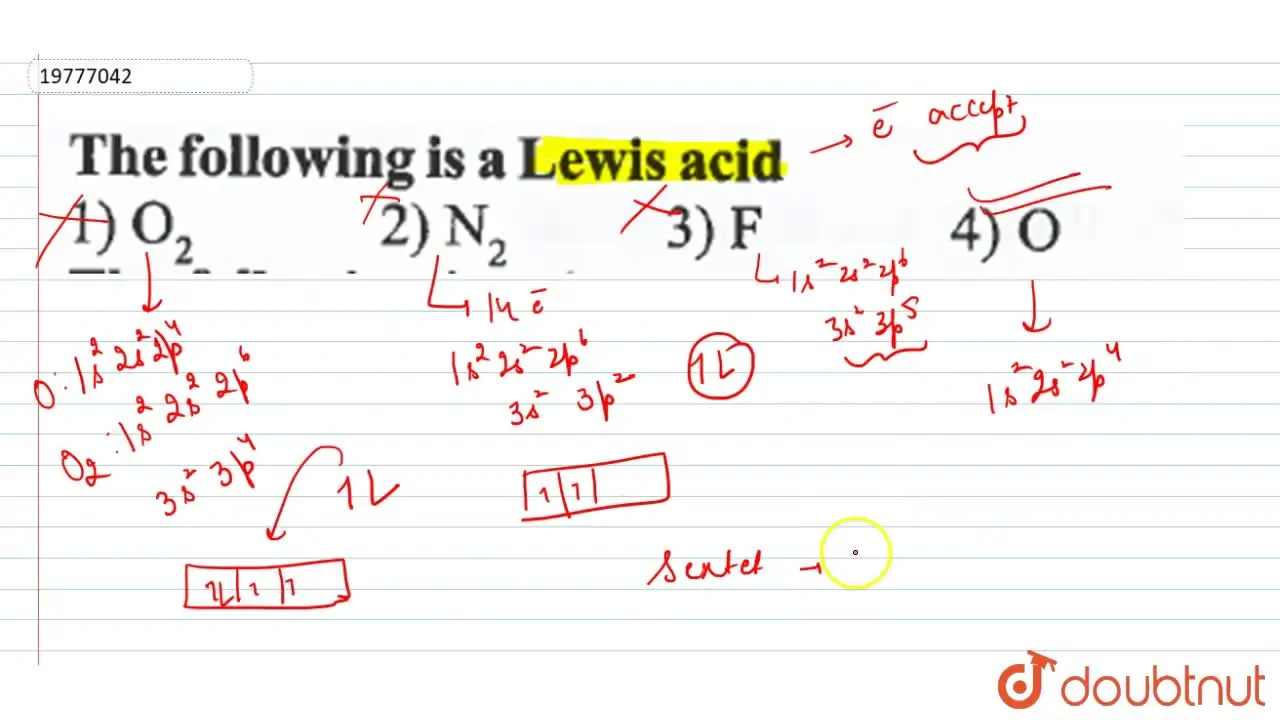 19777042
The following is a Lewis acid → e̅ accept
1) O₂ 2) N₂ 3) F 4) O
O : 1s² 2s² 2p⁴
O₂ : 1s² 2s² 2p⁶
3s² 3p⁴
1L
1L 1 1
14 e̅
1s² 2s² 2p⁶
3s² 3p²
1 1
1L
1s² 2s² 2p⁶
3s² 3p⁵
1s² 2s² 2p⁴
Sextet →
doubtnut